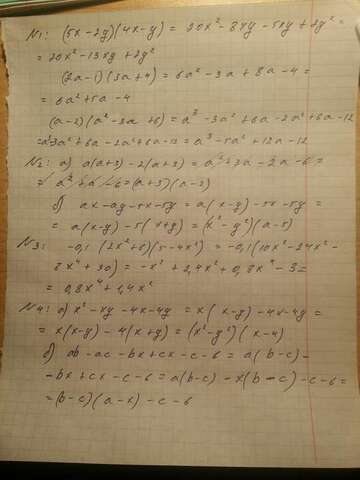 N1: (5x-2y)(4x-y) = 20x²-8xy-5xy+2y² =
= 20x²-13xy+2y²
(2a-1)(3a+4) = 6a²-3a+8a-4 =
= 6a²+5a-4
(a-2)(a²-3a+6) = a³-3a²+6a-2a²+6a-12
= a³-3a²+6a-2a²+6a-12 = a³-5a²+12a-12
N2: а) a(a+3)-2(a+3) = a²+3a-2a-6 =
= a²+a-6 = (a+3)(a-2)
б) ax-ay-5x-5y = a(x-y)-5x-5y =
= a(x-y)-5(x+y) = (x²-y²)(a-5)
N3: -0,1(2x²+6)(5-4x²) = -0,1(10x²-24x²-
8x⁴+30) = -x²+2,4x²+0,8x⁴-3 =
= 0,8x⁴+1,4x²
N4: а) x²-xy-4x-4y = x(x-y)-4x-4y =
= x(x-y)-4(x+y) = (x²-y²)(x-4)
б) ab-ac-bx+cx-c-b = a(b-c)-
-bx+cx-c-b = a(b-c)-x(b-c)-c-b =
= (b-c)(a-x)-c-b